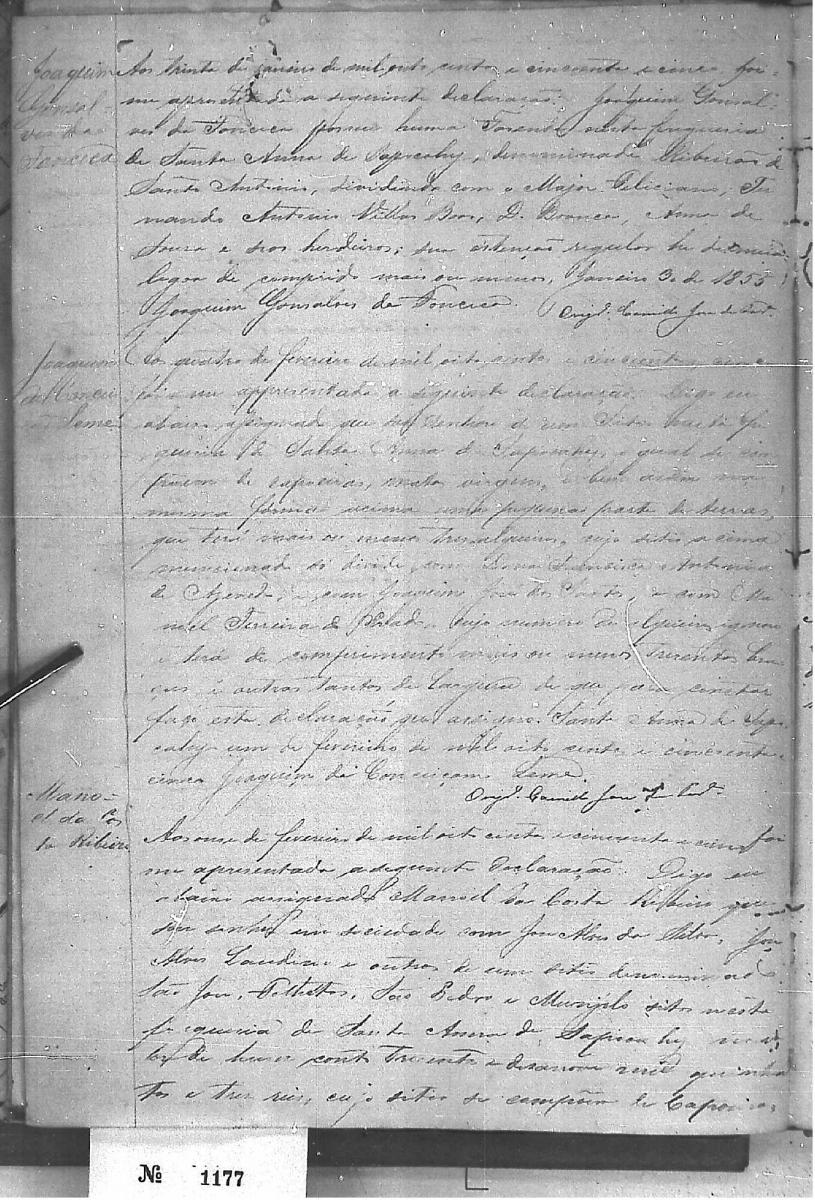 Joaquim
Gonsal-
ves da
Fonceca
Aos trinta de janeiro de mil oito centos e cincoenta e cinco foi
me apresentada a seguinte declaração. Joaquim Gonsal-
ves da Fonceca possue huma Fazenda nesta freguesia
de Santa Anna de Sapucahy, denominada Ribeirão de
Santo Antonio, dividindo com o Major Feliciano, Fer
nando Antonio Villas Boas, D. Branca, Anna de
Souza e seos herdeiros; sua extenção regular he de meia
legoa de comprido mais ou menos, Janeiro 30 de 1855
Joaquim Gonsalves da Fonceca.
Joaquim
da Concei
Leme
Aos quatro de fevereiro de mil oito centos e cincoenta e cinco
foi me appresentada a seguinte declaração. Digo eu
abaixo assignado que sou senhor de um Sitio nesta fre
guesia de Santa Anna de Sapucahy, o qual se com
poem de capoeiras, matos virgem, e bem assim na
mesma forma acima uma pequena parte de terras,
que terá mais ou menos tres alqueires, cujo sitio acima
mencionado se divide com Dona Francisca Antonia
de Azevedo, e com Joaquim José dos Santos, e com Ma
noel Ferreira do Prado, cujo numero de alqueires ignoro
e terá de comprimento mais ou menos trezentas bra
ças e outras tantas de largura de que para constar
faço esta declaração que assigno. Santa Anna de Sapu
cahy um de fevereiro de mil oito centos e cincoenta e
cinco Joaquim da Conceiçam Leme.
Mano-
el da Cos
ta Ribeiro
Aos onse de fevereiro de mil oito centos e cincoenta e cinco foi
me apresentada a seguinte declaração. Digo eu
abaixo assignado Manoel da Costa Ribeiro que
sou senhor em sociedade com José Alves da Silva, José
Alves Landim e outros de um sitio denominado
São José, São Pedro e sitos nesta
freguesia de Santa Anna de Sapucahy no va
lor de hum conto trezentos e desanove mil quinhen
tos e tres reis, cujo sitio se compõem de Capoeiras,
Nº 1177